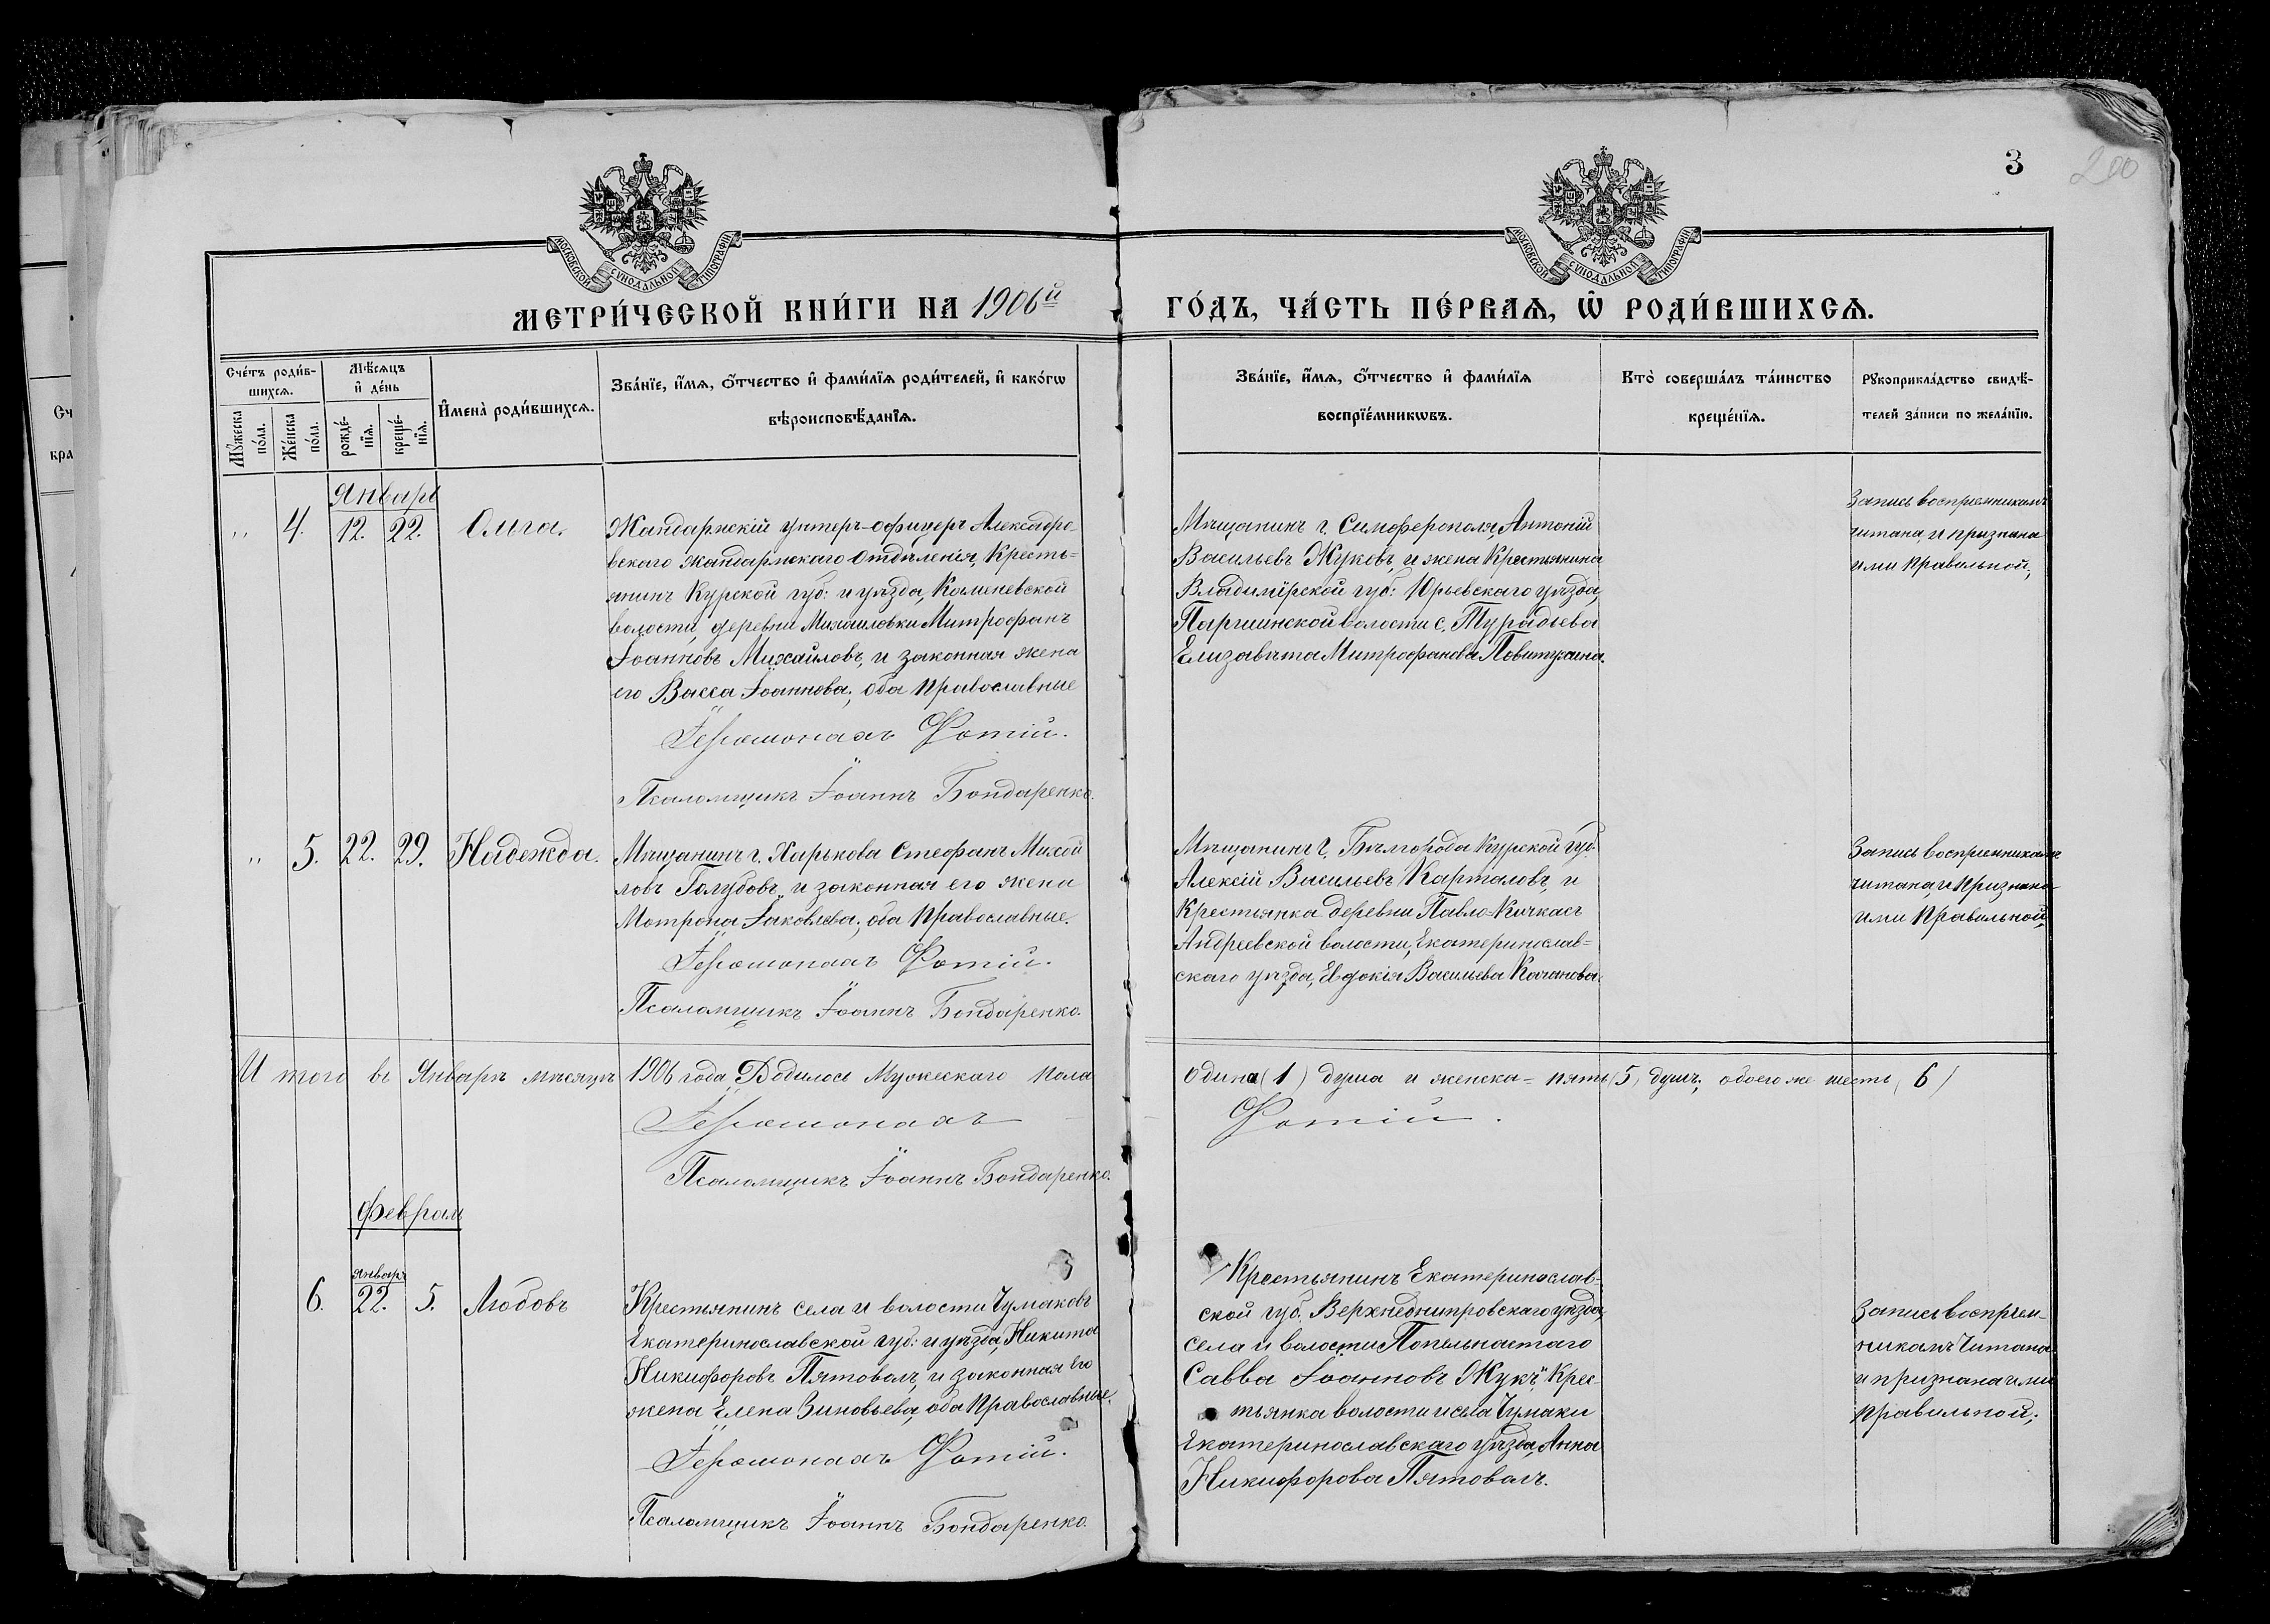 3
200
МОСКОВСКОЙ СѴНОДАЛЬНОЙ ТИПОГРАФІИ
МОСКОВСКОЙ СѴНОДАЛЬНОЙ ТИПОГРАФІИ
МЕТРИ́ЧЕСКОЙ КНИ́ГИ НА 1906й
ГО́ДЪ, ЧА́СТЬ ПЕ́РВАѦ, Ѡ҆ РОДИ́ВШИХСѦ.
Сче́тъ роди́в-
шихсѧ.
Мꙋ́жеска по́ла.
Же́нска по́ла.
Мѣ́сѧцъ
и҆ де́нь
рожде́-
нїѧ.
креще́-
нїѧ.
И҆мена̀ роди́вшихсѧ.
Зва́нїе, и҆́мѧ, ѻ҆́тчество и҆ фами́лїѧ роди́телей, и҆ како́гѡ
вѣроисповѣ́данїѧ.
Зва́нїе, и҆́мѧ, ѻ҆́тчество и҆ фами́лїѧ
воспрїе́мникѡвъ.
Кто̀ соверша́лъ та́инство
креще́нїѧ.
Рꙋкоприкла́дство свидѣ́-
телей за́писи по жела́нїю.
Январь
" 4. 12. 22. Ольга.
Жандармскій унтеръ-офицеръ Александро
вскаго жандармскаго отдѣленія, Кресть=
янинъ Курской губ: и уѣзда, Каменевской
волости, деревни Михаиловки Митрофанъ
Іоанновъ Михайловъ, и законная жена
его Васса Іоаннова; оба православные
Іеромонахъ Фотій.
Псаломщикъ Іоаннъ Бондаренко.
Мѣщанинъ г. Симферополя, Антоній
Васильевъ Жуковъ, и жена Крестьянина
Владимірской губ: Юрьевскаго уѣзда,
Паршинской волости с. Турабьева
Елизавета Митрофанова Повитухина.
Запись воспріемникамъ
читана, и признана
ими правильной;
" 5. 22. 29. Надежда.
Мѣщанинъ г. Харькова Стефанъ Михай
ловъ Голубовъ, и законная его жена
Мотрона Іаковлева; оба православные.
Іеромонахъ Фотій.
Псаломщикъ Іоаннъ Бондаренко.
Мѣщанинъ г. Бѣлгорода Курской губ:
Алексій Васильевъ Карталовъ, и
Крестьянка деревни Павло-Кичкасъ
Андреевской волости, Екатеринослав=
скаго уѣзда, Евдокія Васильева Качанова.
Запись воспріемникамъ
читана, и признана
ими правильной;
Итого въ Январѣ мѣсяцѣ 1906 года Родилось Мужескаго пола
одина (1) душа и женска= пять (5) душъ; обоего же шесть (6)
Іеромонахъ
Фотій.
Псаломщикъ Іоаннъ Бондаренко.
Февраль
Январь
6. 22. 5. Любовь
Крестьянинъ села и волости Чумаковъ
Екатеринославской губ: и уѣзда, Никита
Никифоровъ Пятовалъ, и законная его
жена Елена Зиновьева, оба православные.
Іеромонахъ Фотій.
Псаломщикъ Іоаннъ Бондаренко.
Крестьянинъ Екатеринослав-
ской губ. Верхнеднипровскаго уѣзда,
села и волости Попельнастаго
Савва Іоанновъ Жукъ, Крес-
тьянка волости и села Чумаки
Екатеринославскаго уѣзда, Анна
Никифорова Пятовалъ.
Запись воспріем-
никамъ читана
и признана ими
правильной;